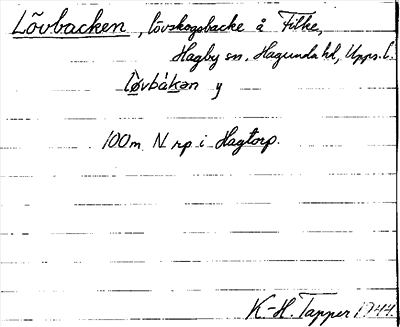 Lövbacken, lövskogsbacke å Filke,
Hagby sn, Hagunda hd, Upps. l.
lø̀vbákan y
100 m N rp i Hagtorp.
K-H. Tapper 1944.